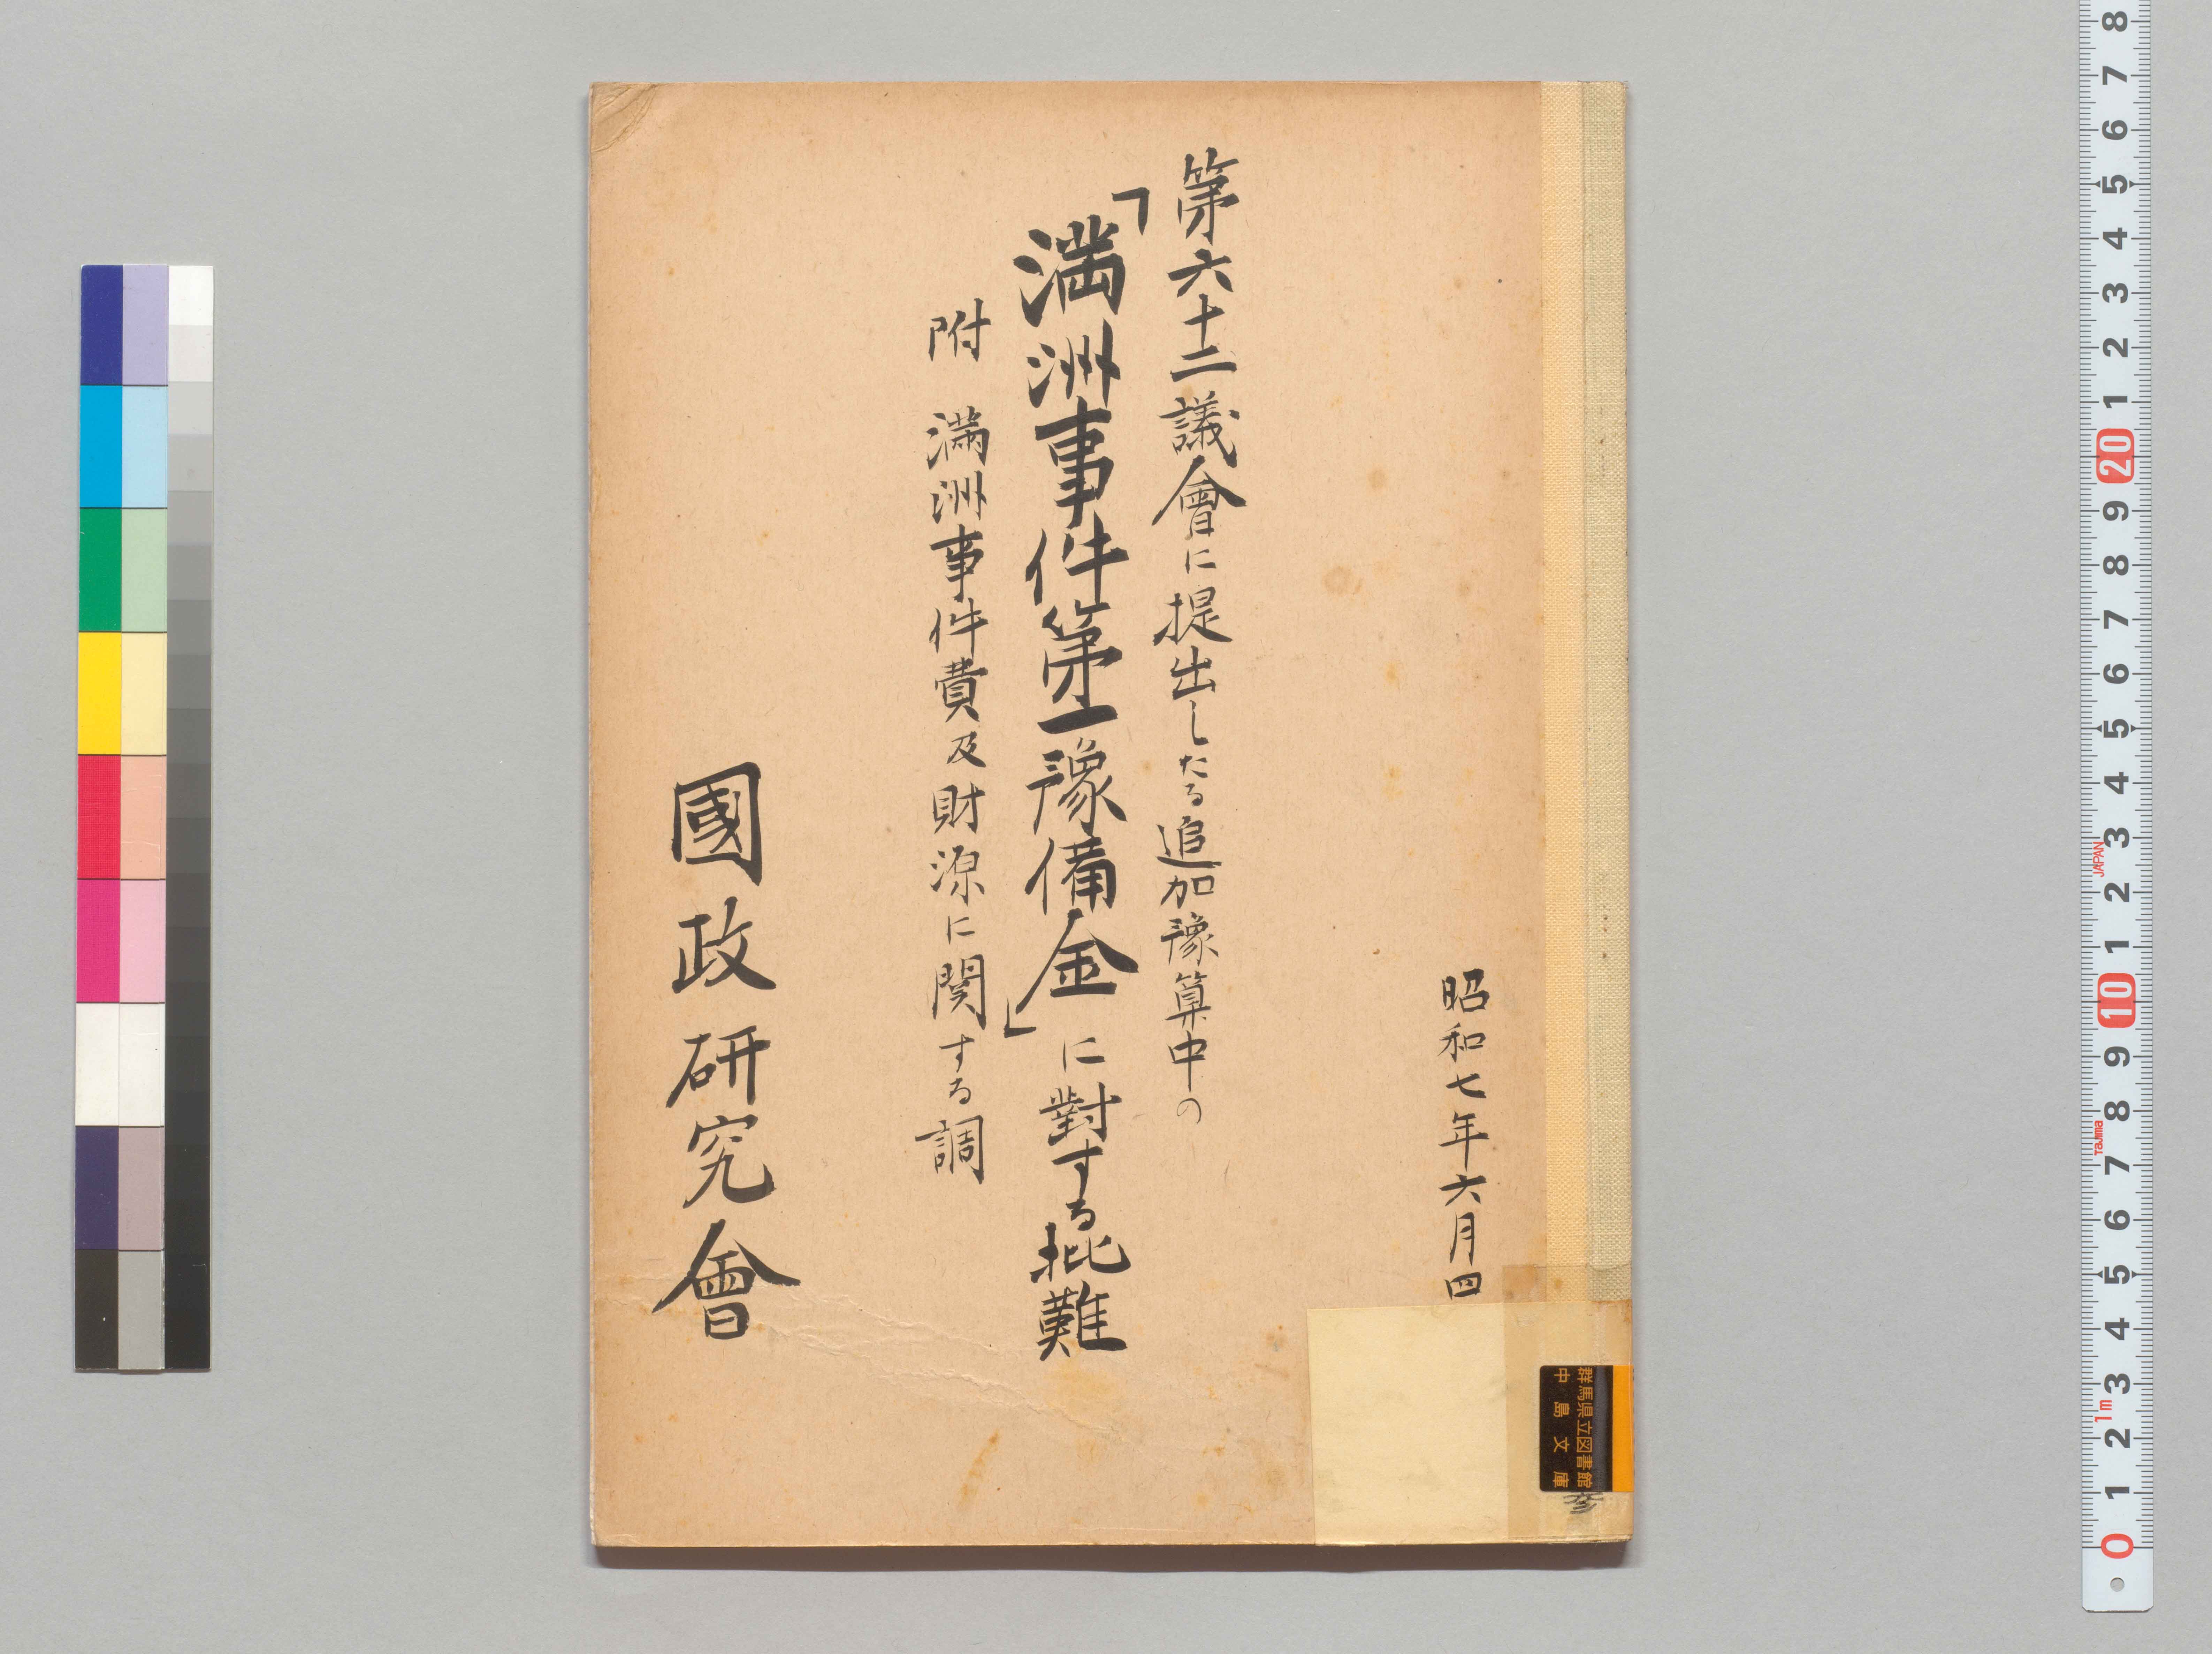 昭和七年六月四
第六十二議會に提出したる追加豫算中の
「満洲事件第一豫備金」に對する批難
附 満洲事件費及財源に関する調
國政研究會
群馬県立図書館
中島文庫
8
7
6
5
4
3
2
1
20
9
8
7
6
5
4
3
2
1
10
9
8
7
6
5
4
3
2
1
0
JAPAN
Tajima
1m